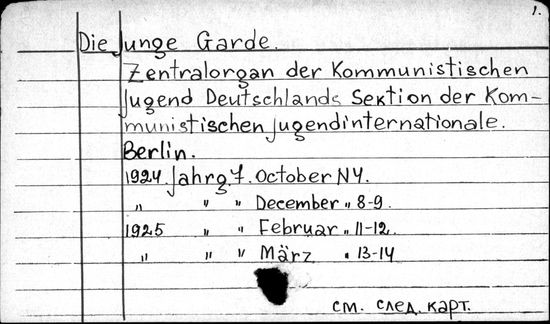 1.
Die Junge Garde.
Zentralorgan der Kommunistischen
Jugend Deutschlands Sektion der Kom-
munistischen Jugendinternationale.
Berlin.
1924. Jahrg. 7. October N4.
„ „ „ December „ 8-9.
1925 „ „ Februar „ 11-12.
„ „ „ März „ 13-14
см. след. карт.